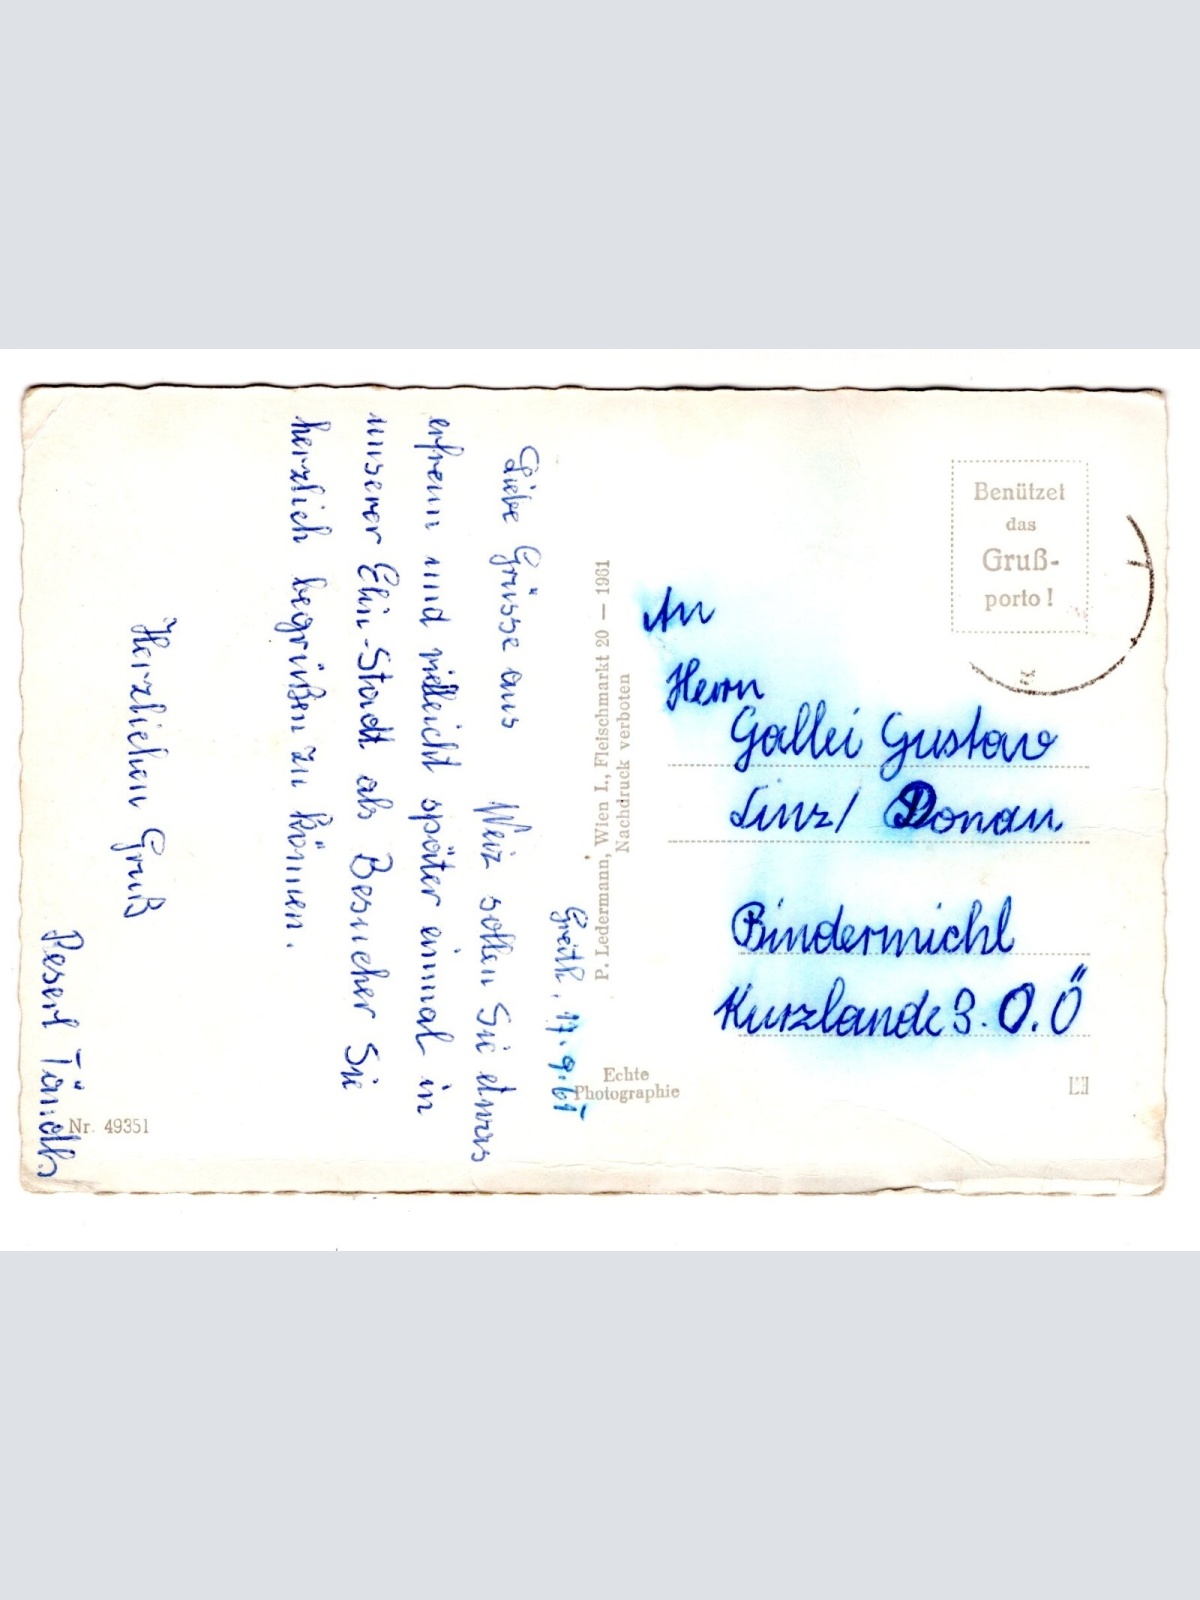 17.9.61
Liebe Grüsse aus Weiz sollen Sie etwas
erfreun und vielleicht später einmal in
unserer Elin-Stadt als Besucher Sie
herzlich begrüßen zu können.
Herzlichen Gruß
Nr. 49351
P. Ledermann, Wien I., Fleischmarkt 20 — 1961
Nachdruck verboten
Echte
Photographie
Benützet
das
Gruß-
porto!
An
Herrn
Gallei Gustav
Linz/ Donau
Bindermichl
Kurzlande 3. O.Ö